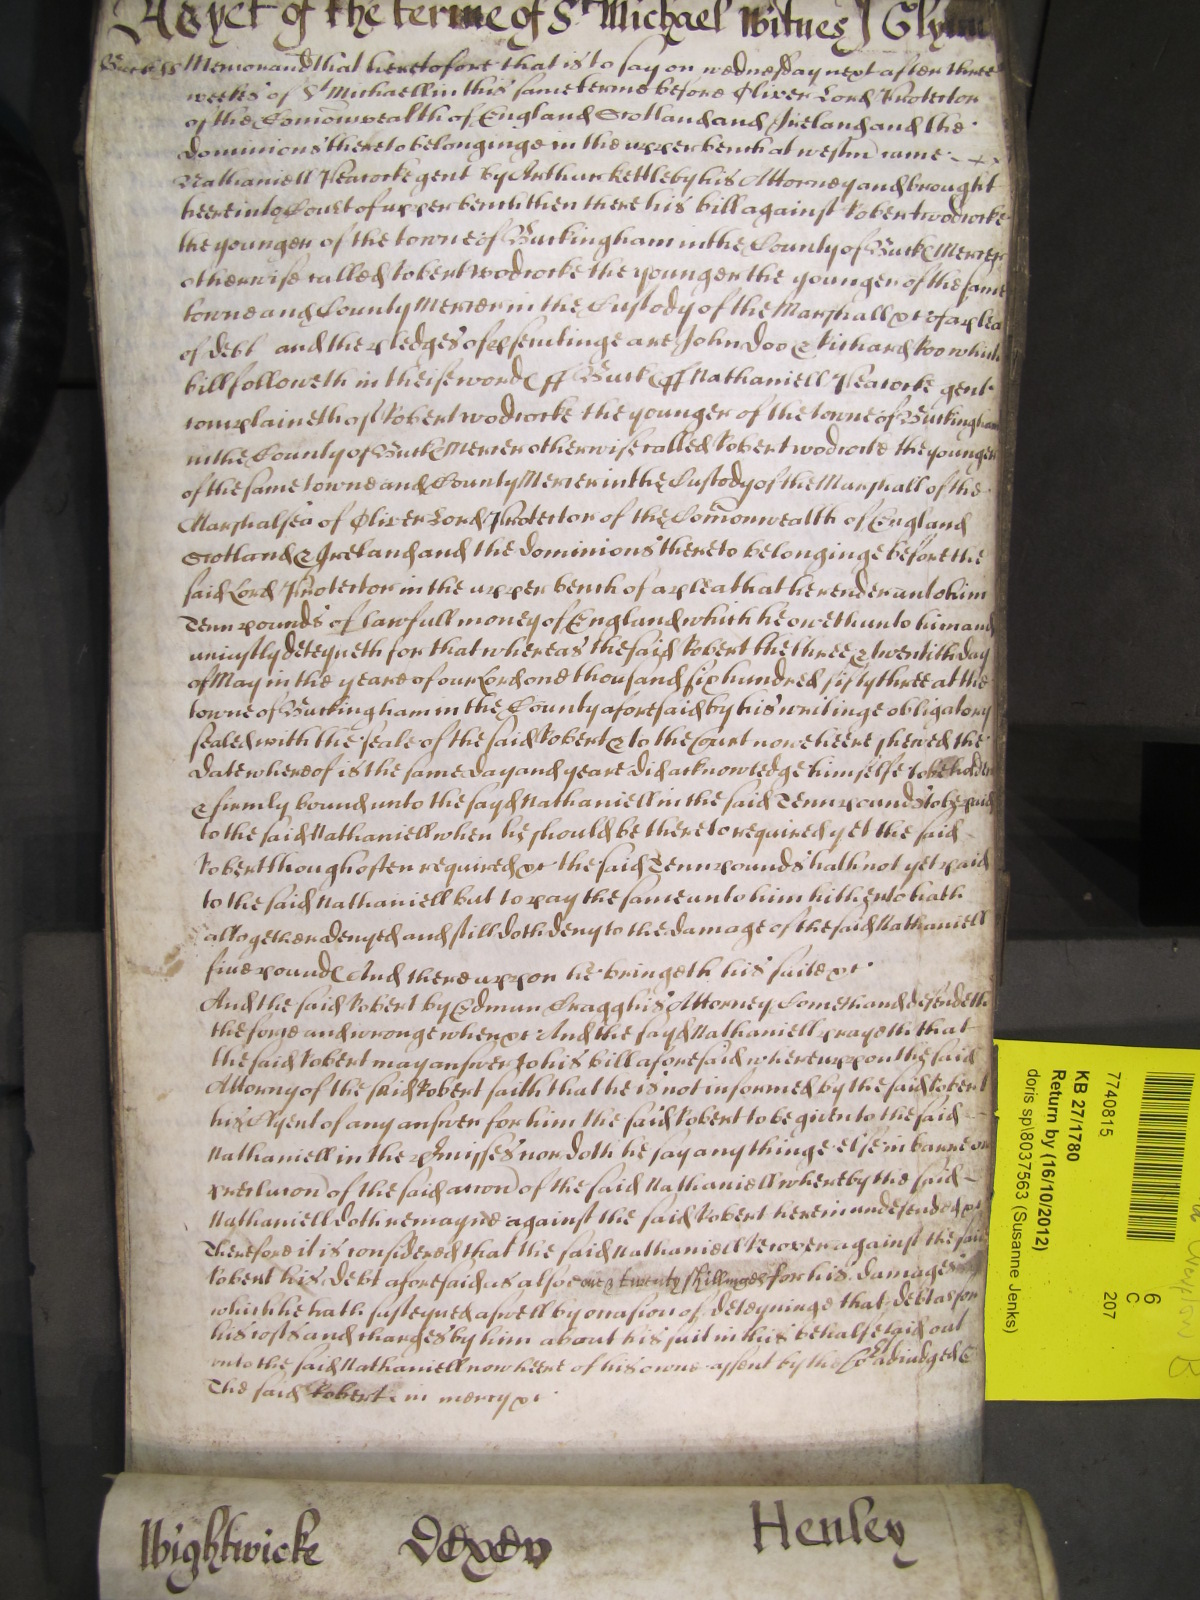 As yet of the terme of St Michael Witnes J Glynn
Buck ss Memorand that heretofore that is to say on wednesday next after three
weekes of St Michaell in this same terme before Oliver Lord Protector
of the Comonwealth of England Scotland and Ireland and the
dominions thereto belonginge in the upper bench at westm came
Nathaniell Peacocke gent by Arthur kettleby his Attorney and brought
heere into Court of upper bench then there his bill against Robert wodcocke
the younger of the towne of Buckingham in the County of Buck Mercer
otherwise called Robert Wodcocke the younger the younger of the same
towne and County Mercer in the Custody of the Marshall &c of a plea
of debt and the pledges of psecutinge are John Doo & Richard Roo which
bill followeth in theise word ff Buck ff Nathaniell Peacocke gent
complaineth of Robert wodcocke the younger of the towne of Buckingham
in the County of Buck Mercer otherwise called Robert wodcocke the younger
of the same towne and County Mercer in the Custody of the Marshall of the
Marshalsea of Oliver Lord Protector of the Comonwealth of England
Scotland & Ireland and the dominions thereto belonginge before the
said Lord Protector in the upper bench of a plea that he render unto him
Tenn pounds of lawfull money of England which he oweth unto him and
uniustly deteyneth for that whereas the said Robert the three & twentith day
of May in the yeare of our Lord one thousand six hundred fifty three at the
towne of Buckingham in the County aforesaid by his writinge obligatory
sealed with the seale of the said Robert & to the Court nowe heere shewed the
date whereof is the same day and yeare did acknowledge himselfe to be holden
& firmly bound unto the sayd Nathaniell in the said Tenn pounds to be paid
to the said Nathaniell when he should be thereto required yet the said
Robert though often required &c the said Tenn pounds hath not yet paid
to the said Nathaniell but to pay the same unto him hitherto hath
altogether denyed and still doth deny to the damage of the said Nathaniell
five pound And thereuppon he bringeth his suite &c
And the said Robert by Edmun Cragg his Attorney Cometh and defendeth
the force and wronge when &c And the sayd Nathaniell prayeth that
the said Robert may answer to his bill aforesaid whereuppon the said
Attorny of the said Robert saith that he is not informed by the said Robert
his Clyent of any answer for him the said Robert to be given to the said
Nathaniell in the pmisses nor doth he say any thinge else in barre or
preclucon of the said accon of the said Nathaniell whereby the said
Nathaniell doth remayne against the said Robert herein undefended &c
Therefore it is considered that the said Nathaniell Recover against the said
Robert his debt aforesaid as alsoe one & twenty shillinges for his damages
which he hath susteyned aswell by occasion of deteyninge that debt as for
his costs and charges by him about his suit in this behalfe laid out
unto the said Nathaniell now heere of his owne assent by the Cort adiudged &
The said Robert in mercy &c
Wightwicke Dexer Henley
7740815
KB 27/1780
Return by (16/10/2012)
doris sp\8037563 (Susanne Jenks)
6
C
207